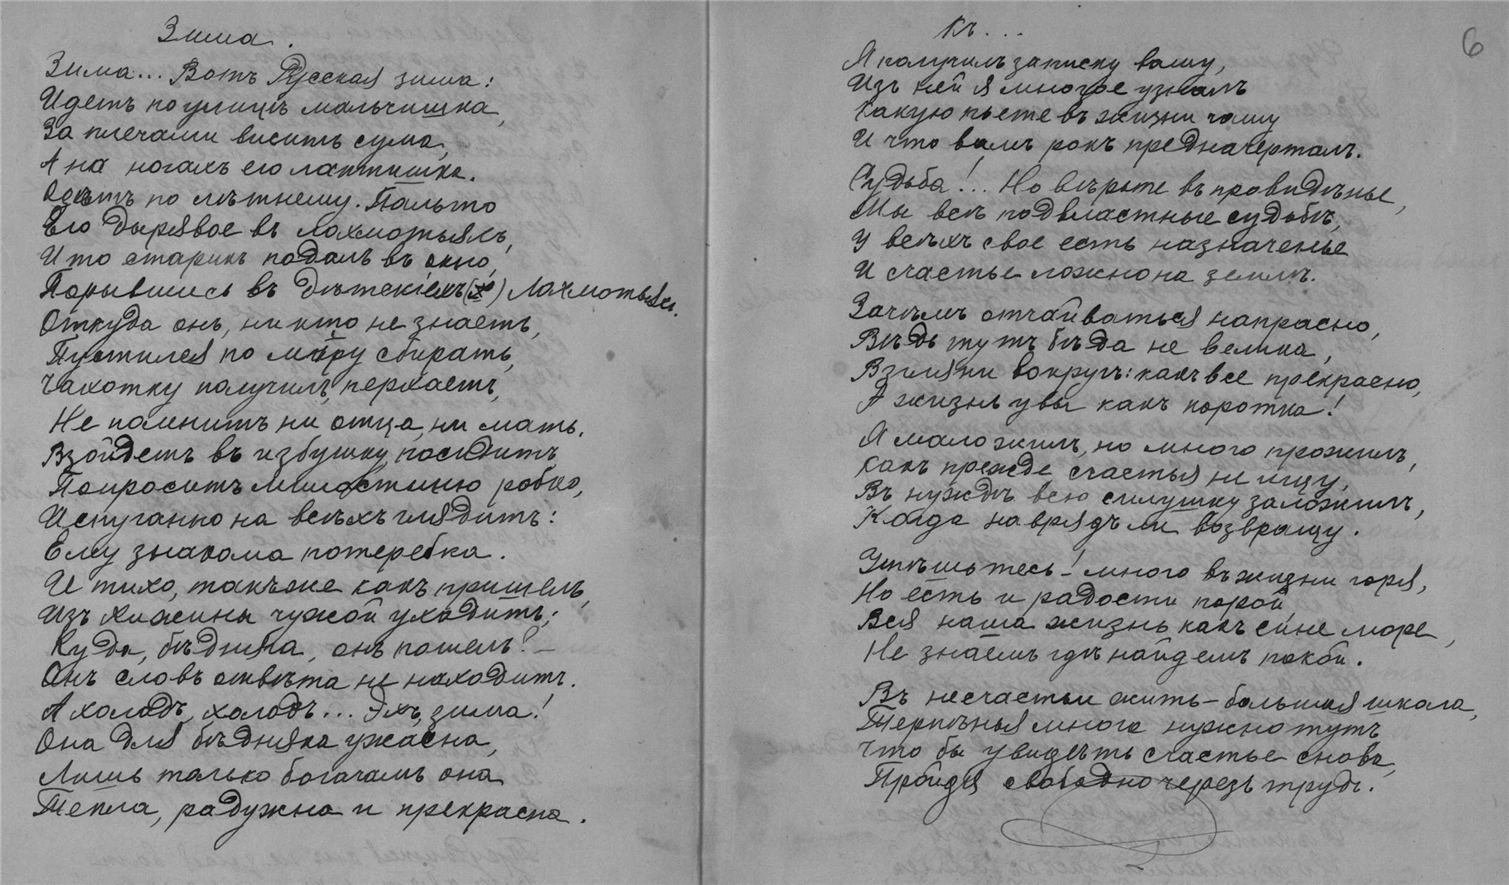 Зима.
Зима... Вотъ Русская зима:
Идетъ по улицѣ мальчишка,
За плечами виситъ сума,
А на ногахъ его лаптишка.
Одѣтъ по лѣтнему. Пальто
Его дырявое въ лохмотьяхъ,
И то старикъ подалъ въ окно,
Порывшись въ дѣтскихъ лохмотьяхъ.
Откуда онъ, ни кто не знаетъ,
Пустился по міру сбирать,
Чахотку получилъ, перхаетъ,
Не помнитъ ни отца, ни мать.
Взойдетъ въ избушку, посидитъ
Попроситъ милостиню робко,
Испуганно на всѣхъ глядитъ:
Ему знакома потеребка.
И тихо, такъ же какъ пришелъ,
Изъ хижины чужой уходитъ;
Куда, бѣдняга, онъ пошелъ? –
Онъ словъ отвѣта не находитъ.
А холодъ, холодъ... Эхъ, зима!
Она для бѣдняка ужасна,
Лишь только богачамъ она
Тепла, радужна и прекрасна.
Къ...
6
Я получилъ записку вашу,
Изъ ней я многое узналъ
Какую пьете въ жизни чашу
И что вамъ рокъ предначерталъ.
Судьба!.. Но вѣрьте въ провидѣнье,
Мы всѣ подвластные судьбѣ,
У всѣхъ свое есть назначенье
И счастье ложно на землѣ.
Зачѣмъ отчаиваться напрасно,
Вѣдь тутъ бѣда не велика,
Взгляни вокругъ: какъ все прекрасно,
А жизнь увы какъ коротка!
Я мало жилъ, но много прожилъ,
Какъ прежде счастья не ищу,
Въ нуждѣ всю силушку заложилъ,
Когда наврядъ ли возвращу.
Утѣшьтесь! много въ жизни горя,
Но есть и радости порой,
Вся наша жизнь какъ сине море,
Не знаемъ гдѣ найдемъ покой.
Въ несчастьи жить – большая школа,
Терпѣнья много нужно тутъ
Что бы увидѣть счастье снова,
Пройдя свободно черезъ трудъ.